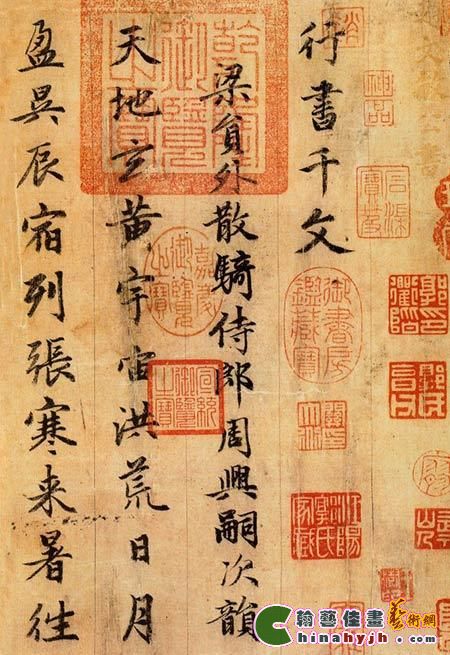 行書千文
梁貟外散騎侍郎周興嗣次韻
天地玄黄宇宙洪荒日月
盈昃辰宿列張寒来暑往
神品
石渠寶笈
御書房鑑藏寶
乾隆御覽之寶
嘉慶御覽之寶
宣統御覽之寶
翰藝佳畫藝術網
Chinahyjh.com